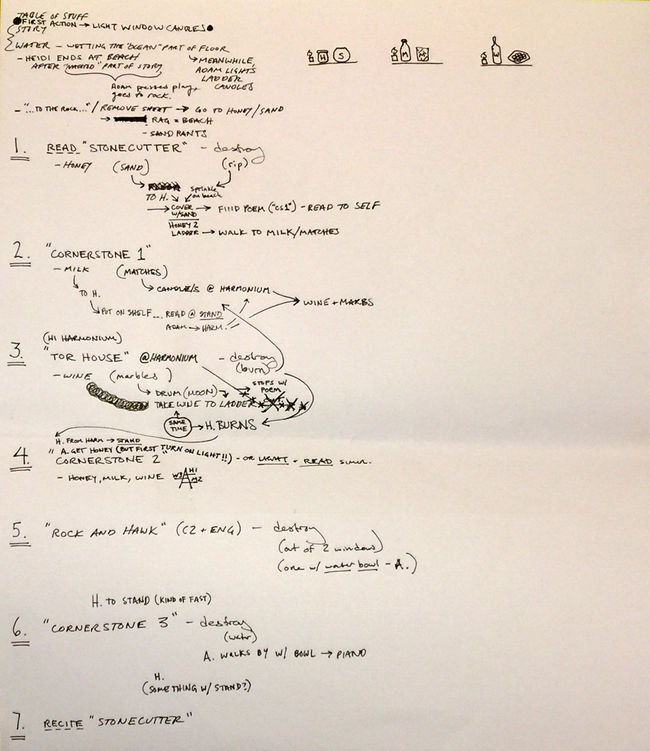 TABLE OF STUFF
FIRST ACTION → LIGHT WINDOW CANDLES
STORY
WATER - WETTING THE "OCEAN" PART OF FLOOR
- HEIDI ENDS AT BEACH
AFTER "WASTED" PART OF STORY
MEANWHILE, ADAM LIGHTS LADDER CANDLES
ADAM PRESSES PLAY, GOES TO ROCK.
- "...TO THE ROCK..." / REMOVE SHEET → GO TO HONEY/SAND
→ RAG = BEACH
- SAND PANTS
H S
M
W
1. READ "STONECUTTER" - destroy
(rip)
- HONEY (SAND)
TO H. sprinkle on beach
→ COVER W/SAND → FIND POEM ("CS1") - READ TO SELF
HONEY 2
LADDER → WALK TO MILK/MATCHES
2. "CORNERSTONE 1"
- MILK (MATCHES)
→ CANDLE/S @ HARMONIUM
TO H.
→ PUT ON SHELF... READ @ STAND
ADAM → HARM.
→ WINE + MARBS
(HI HARMONIUM)
3. "TOR HOUSE" @HARMONIUM - destroy
(burn)
- WINE (marbles)
→ DRUM (MOON)
STOPS W/ POEM
TAKE WINE TO LADDER
SAME TIME → H. BURNS
H. FROM HARM → STAND
" A. GET HONEY (BUT FIRST TURN ON LIGHT!!)
4. CORNERSTONE 2" - OR LIGHT + READ simul.
- HONEY, MILK, WINE
5. "ROCK AND HAWK" (C2 + ENG) - destroy
(out of 2 windows)
(one w/ water bowl - A.)
H. TO STAND (KIND OF FAST)
6. "CORNERSTONE 3" - destroy
(water)
A. WALKS BY W/ BOWL → PIANO
H.
(SOMETHING W/ STAND?)
7. RECITE "STONECUTTER"